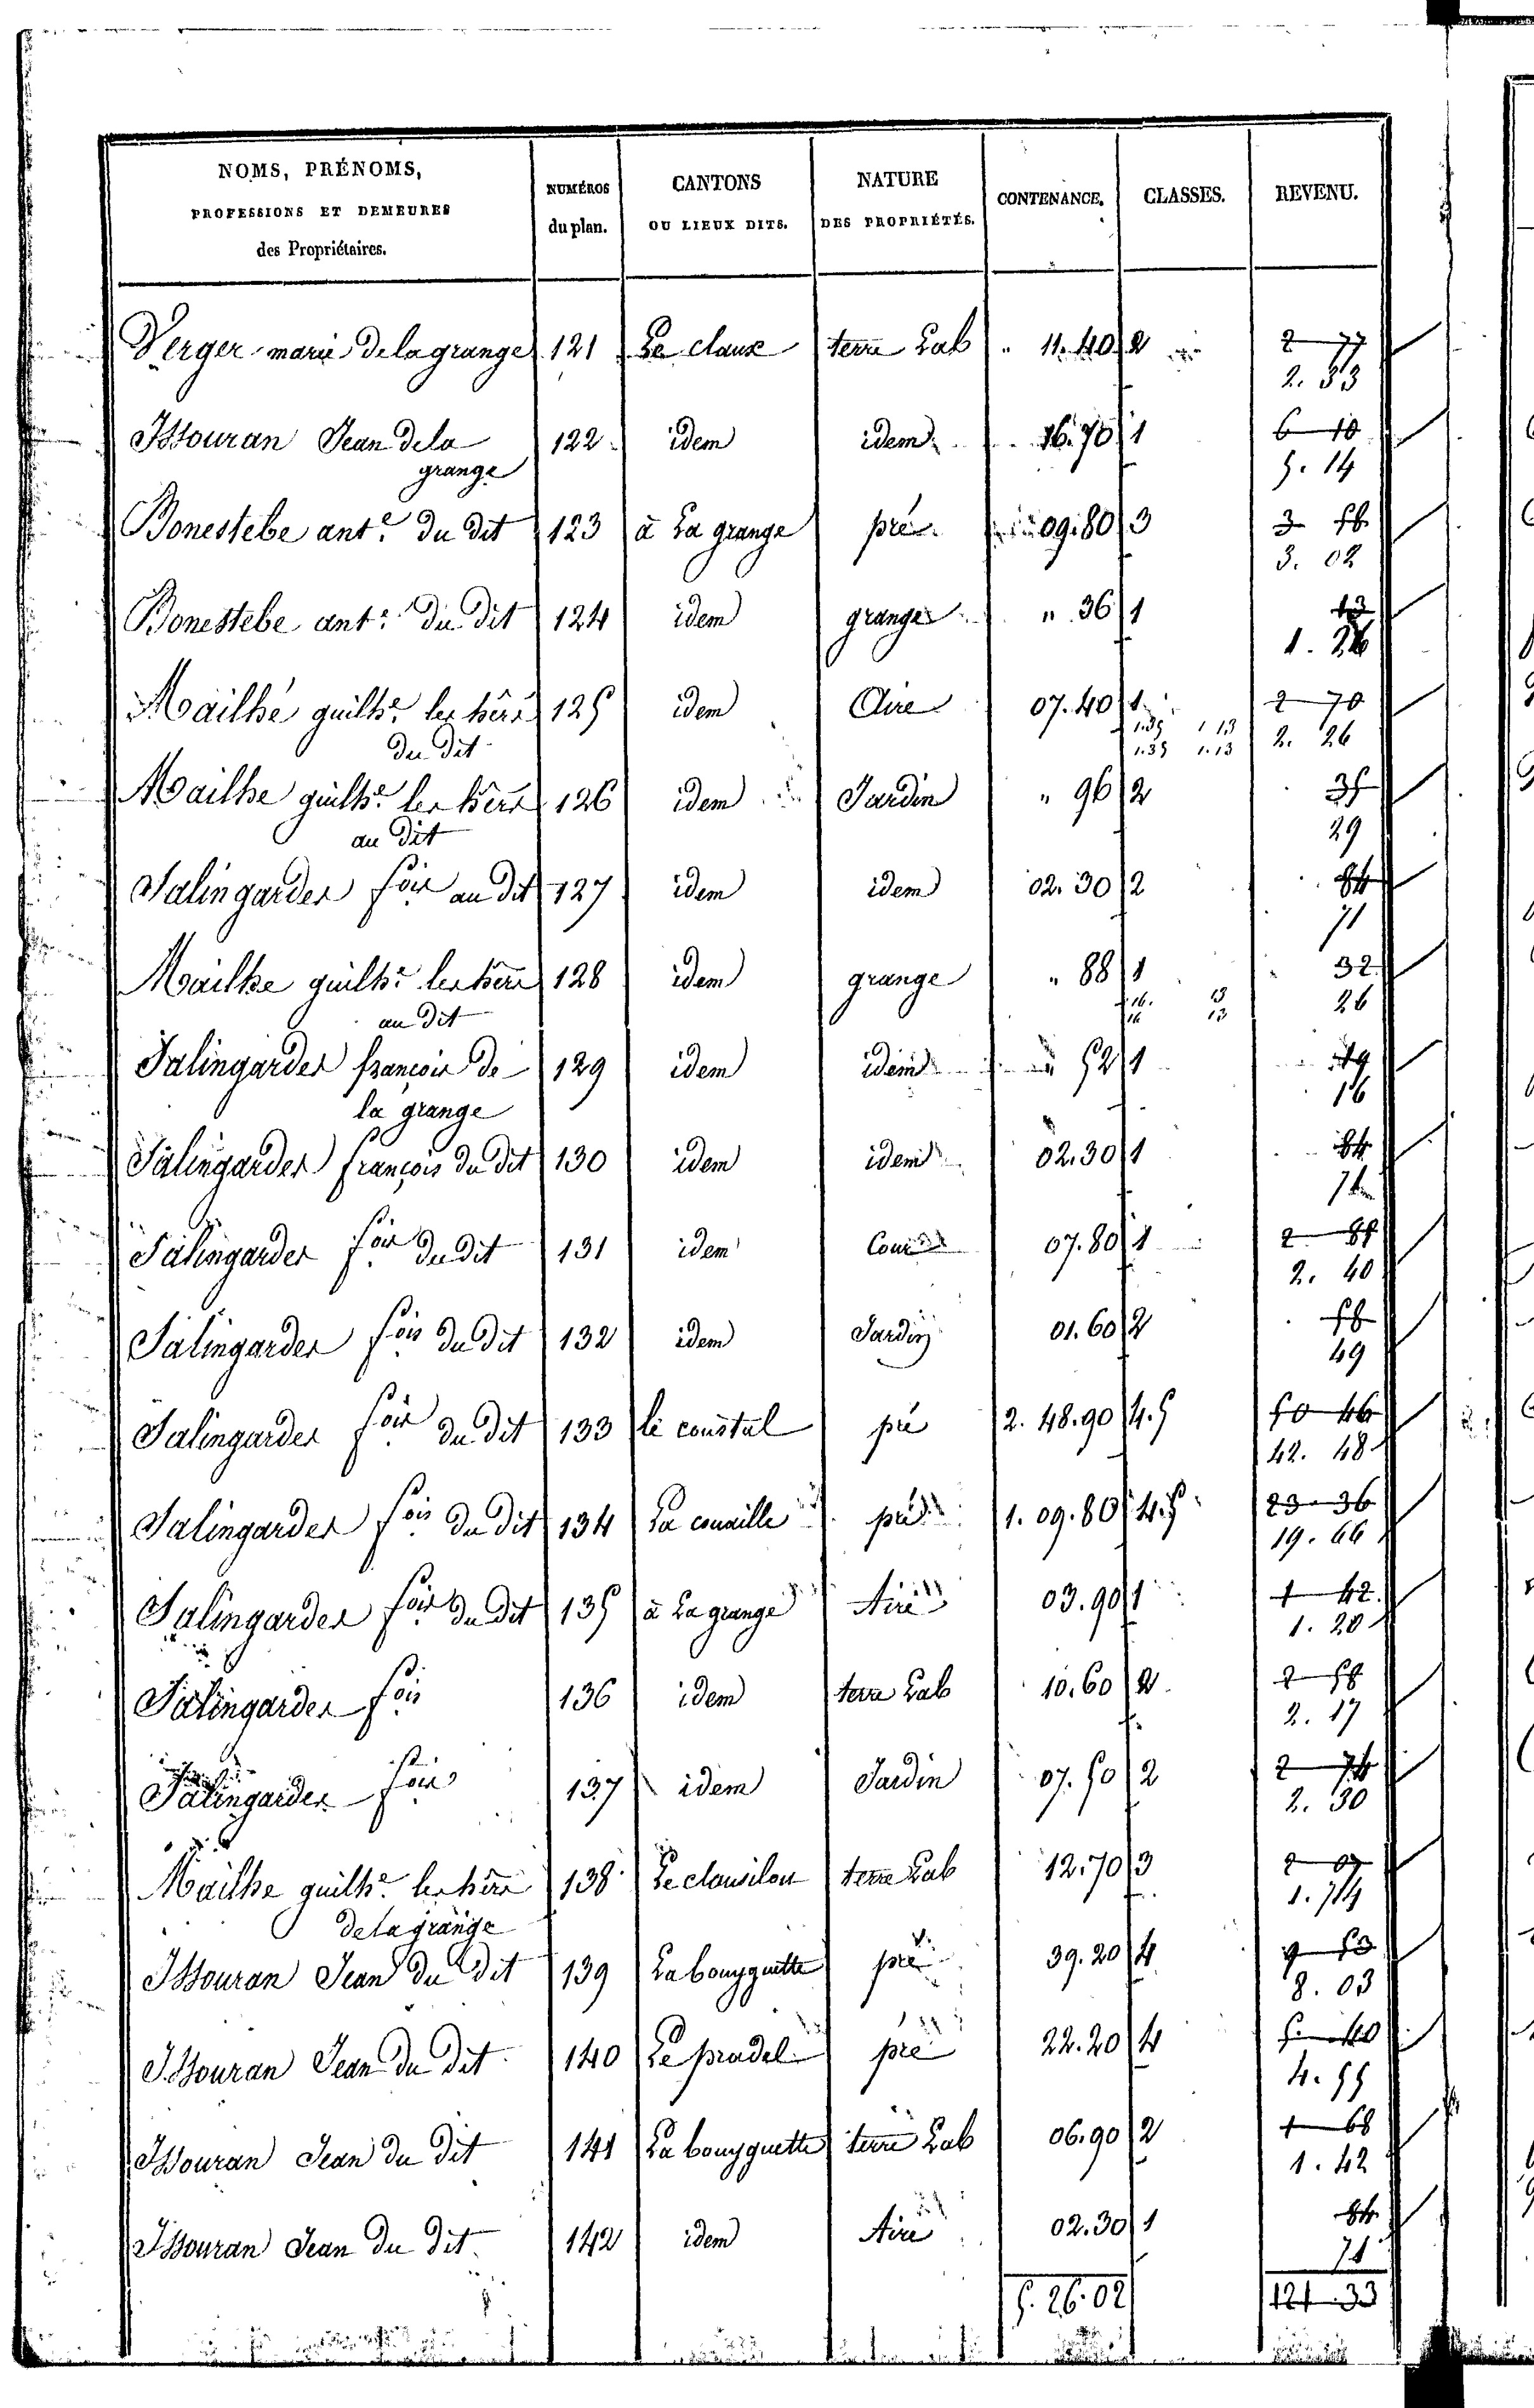 NOMS, PRÉNOMS, PROFESSIONS ET DEMEURES des Propriétaires. NUMÉROS du plan. CANTONS OU LIEUX DITS. NATURE DES PROPRIÉTÉS. CONTENANCE. CLASSES. REVENU.
Verger marie de la grange 121 Le claux terre Lab " 11.40 2 2 77
2. 33
Issouran Jean de la 122 idem idem 16.70 1 6 10
grange 5. 14
Bonestebe ant.e du dit 123 à La grange pré 09.80 3 3 58
3. 02
Bonestebe ant.e du dit 124 idem grange " 36 1 13
1. 26
Mailhé guilh.e les hérs 125 idem Aire 07.40 1 2 70
du dit 1.35 1 13 2. 26
1.35 1.13
Mailhe guilh.e les hérs 126 idem Jardin " 96 2 35
au dit 29
Salingardes f.ois au dit 127 idem idem 02.30 2 84
71
Mailhe guilh.e les hérs 128 idem grange " 88 1 32
au dit 16. 13 26
16 13
Salingardes françois de 129 idem idem " 52 1 19
la grange 16
Salingardes françois du dit 130 idem idem 02.30 1 84
71
Salingardes f.ois du dit 131 idem Cour 07.80 1 2
2. 40
Salingardes f.ois du dit 132 idem Jardin 01.60 2 58
49
Salingardes f.ois du dit 133 le coustal pré 2. 48.90 4.5 50 46
42. 48
Salingardes f.ois du dit 134 La couaille pré 1. 09.80 4.5 23 36
19. 66
Salingardes f.ois du dit 135 à La grange Aire 03.90 1 1 42
1. 20
Salingardes f.ois 136 idem terre Lab 10.60 2 2 58
2. 17
Salingardes f.ois 137 idem Jardin 07.50 2 2 74
2. 30
Mailhe guilh.e les hérs 138 Le clausilou terre Lab 12.70 3 2 07
de la grange 1. 74
Issouran Jean du dit 139 La bouyguette pré 39.20 4 9 53
8. 03
Issouran Jean du dit 140 Le pradel pré 22.20 4 5 40
4. 55
Issouran Jean du dit 141 La bouyguette terre Lab 06.90 2 1 68
1. 42
Issouran Jean du dit 142 idem Aire 02.30 1 84
71
5. 26.02 121 33